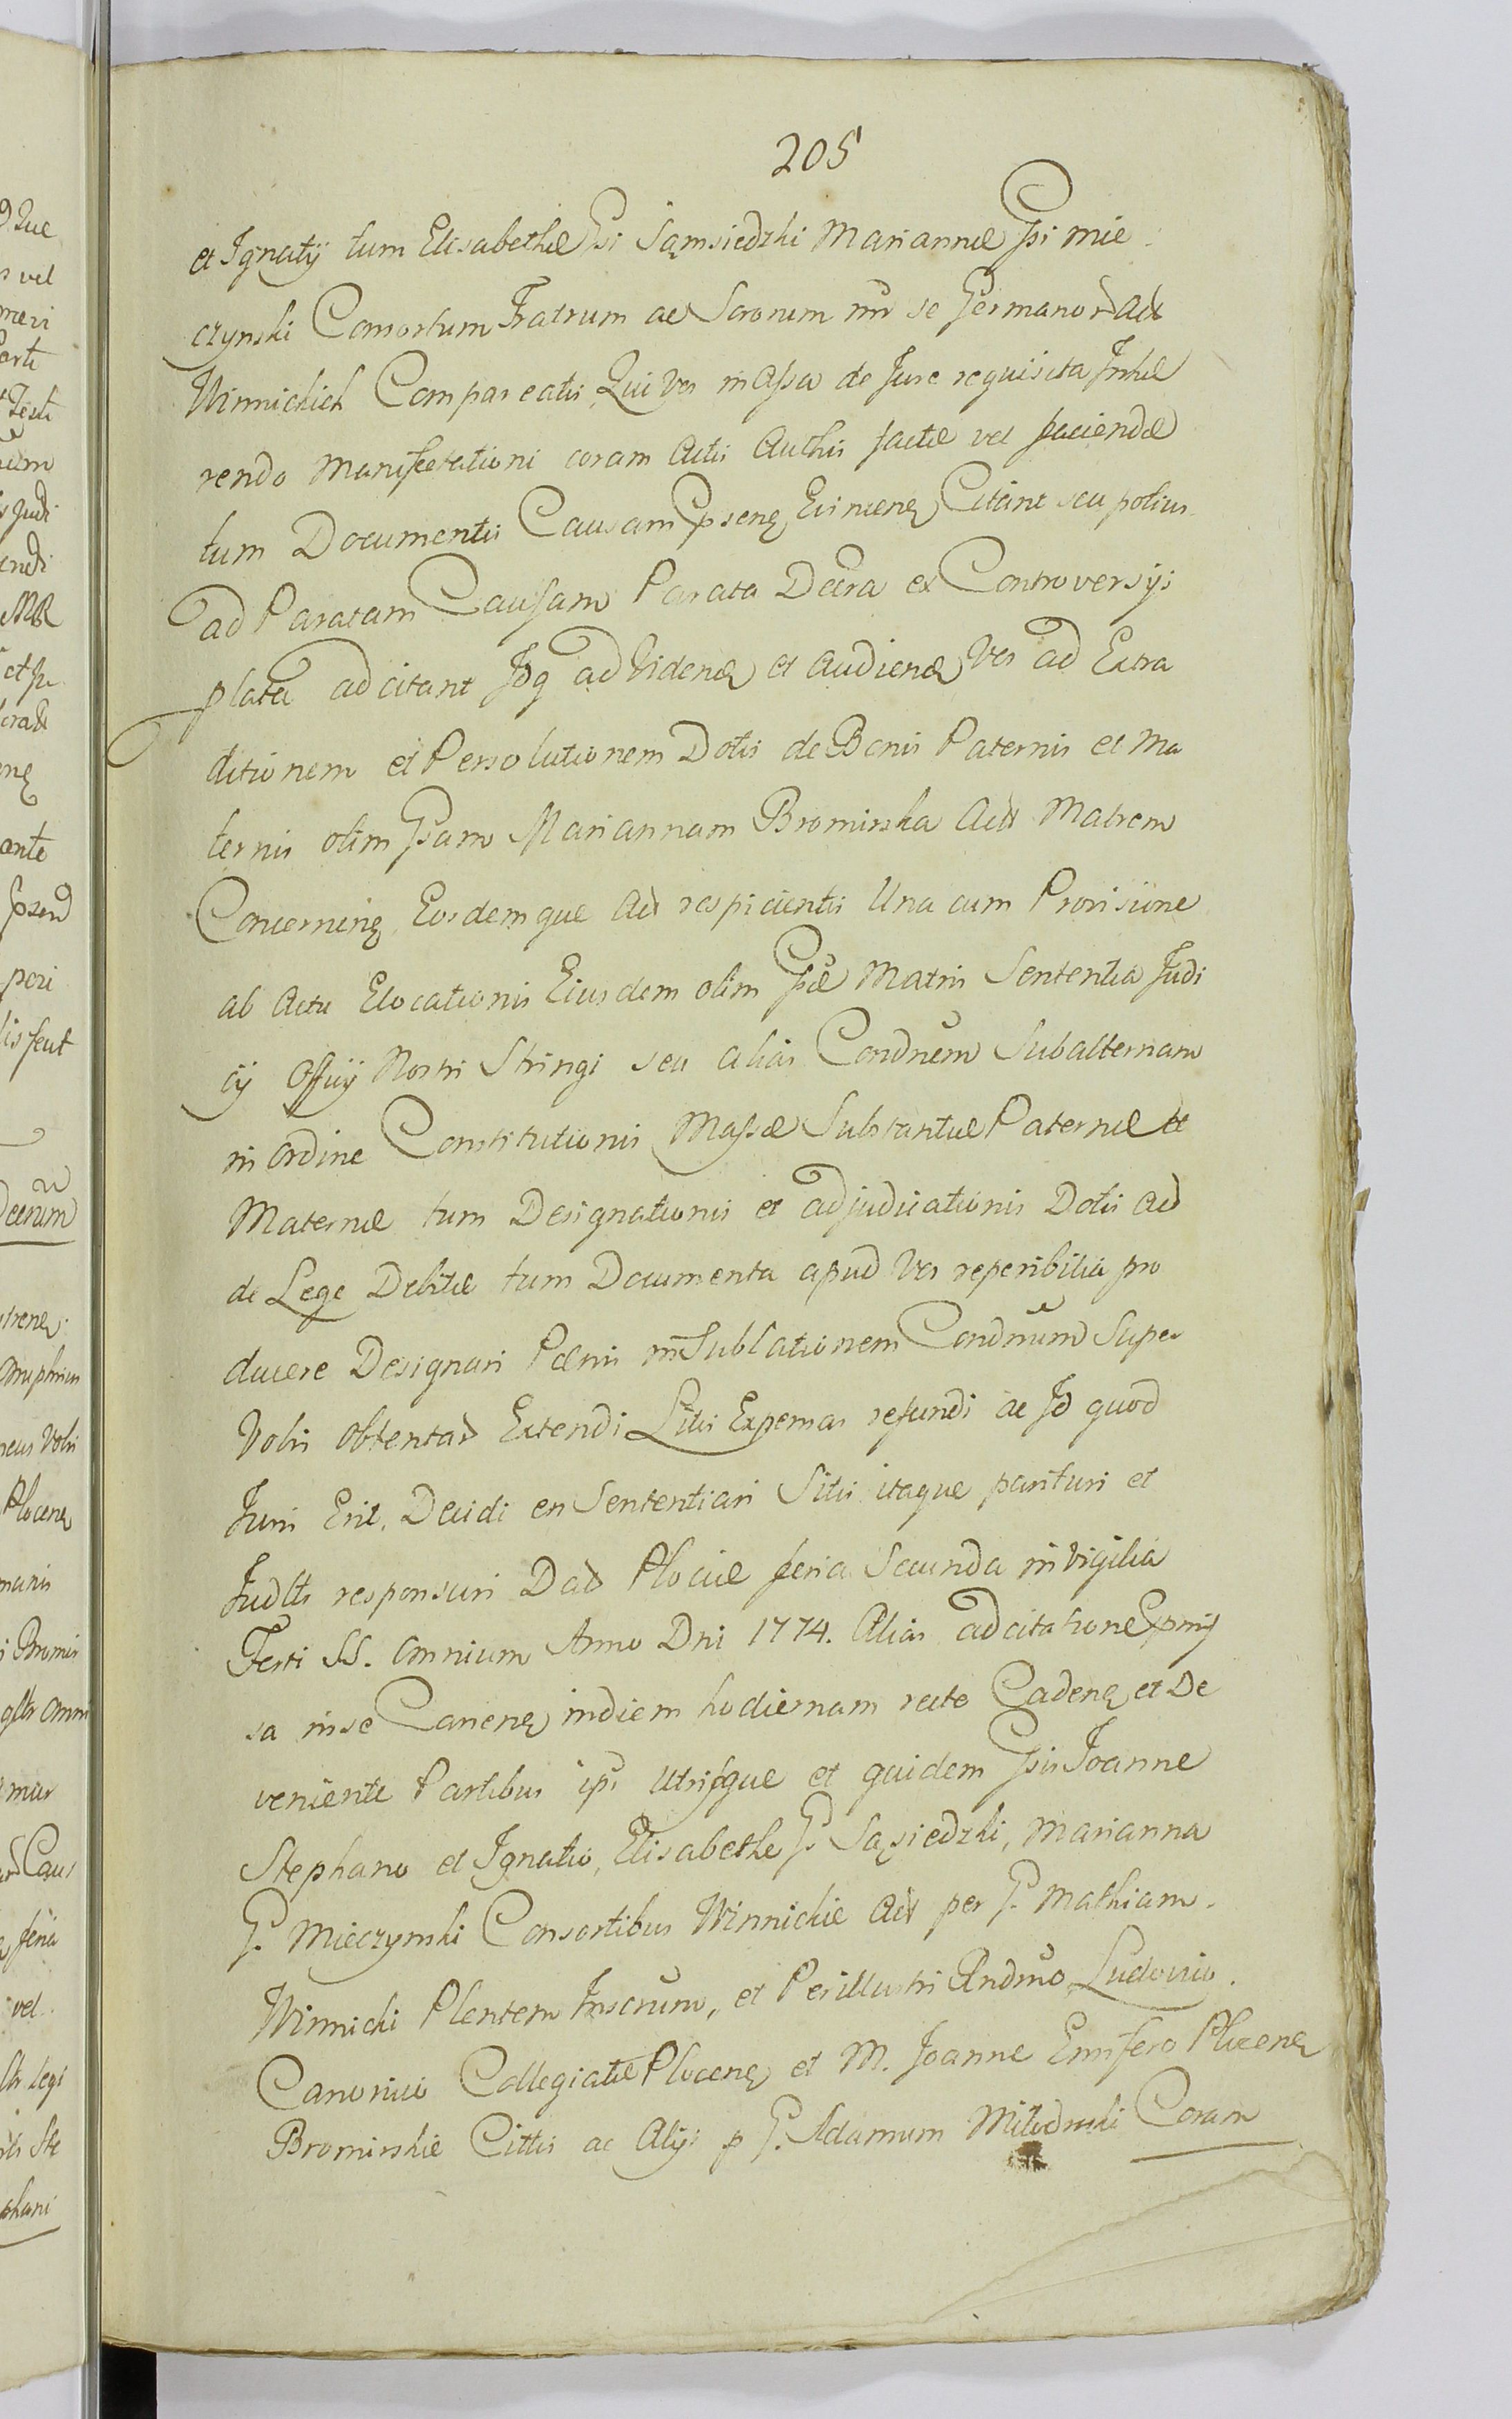 205
et Ignatij tum Elisabethæ Gsi Sąmsiedzki Mariannæ Gsi Mie
czynski Consortum Fratrum ac Sororum inr se Germanor Act
Winnickich Compareatis Qui Vos in Assa de Jure requisita Inhæ
rendo Manifestationi coram Actis Authis factæ vel faciendæ
tum Documentis Causam Citant seu potius
ad Paratam Causam Parata Decra ex Controversijs
plata adcitant Idq ad Videnq et Audienq Vos ad Extra
ditionem et Persolutionem Dotis de Bonis Paternis et Ma
ternis olim Gsam Mariannam Bromirska Act Matrem
Concernenq Eosdemque Act respicientis Una cum Provisione
ab Actu Elocationis Eiusdem olim Gsæ Matris Sententia Judi
cij Officij Nostri Stringi seu alias Condnem Subalternam
in ordine Constitutionis Massæ Substantiæ Paternæ et
Maternæ tum Designationis et adjudicationis Dotis Act
de Lege Debitæ tum Documenta apud Vos reperibilia pro
ducere Designari Pænis in Sublationem Condnum Super
Vobis obtentar Extendi Litis Expensas refundi ac Id quod
Juris Erit, Decidi en Sententiari Sitis itaque parituri et
Judltr responsuri Dat Plociæ feria Secunda in Vigilia
Festi SS. Omnium Anno Dni 1774. Alias adcitatione
sa in se Canenq in diem hodiernam recte Cadenq et De
veniente Partibus ipis Utrisque et quidem Gsis Joanne
Stephano et Ignatio, Elisabethe G. Sąsiedzki, Marianna
G. Mieczynski Consortibus Winnickie Act per G. Mathiam
Winnicki Plentem Inscrum, et Perillustri Rndmo Ludovico
Canonico Collegiatæ Plocenq et M. Joanne Ensifero Plocenq
Bromirskie Cittis ac Alijs p G. Adamum Milodrowski Coram